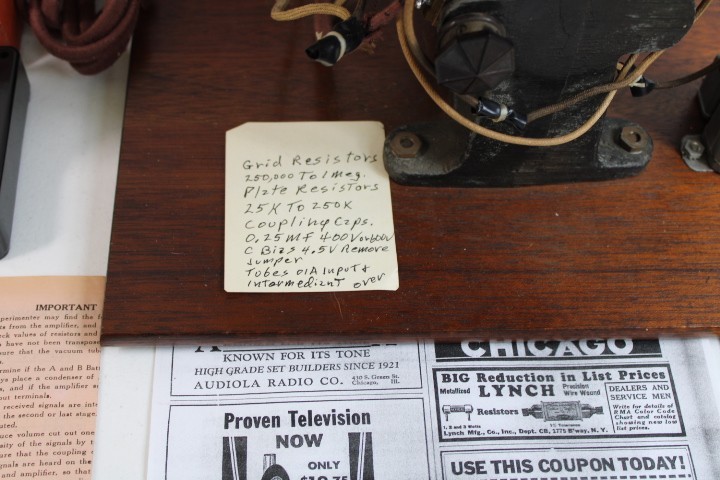 Grid Resistors
250,000 To 1 Meg.
Plate Resistors
25K To 250K
Coupling Caps.
0.25 mf 400V or 600V
C Bias 4.5V Remove
Jumper
Tubes 01A Input &
Intermediant over
IMPORTANT
perimenter may find the f
ts from the amplifier, and
eck values of resistors and
have not been transpos
sure that the vacuum tub
rmine if the A and B Batt
ys place a condenser of
and if the amplifier s
ut terminals.
received signals are int
second or last stage.
ated.
uce volume cut out one
sity of the signals by t
ure that the coupling
gnals are heard on the
and amplifier, so that
KNOWN FOR ITS TONE
HIGH GRADE SET BUILDERS SINCE 1921
AUDIOLA RADIO CO. 430 S. Green St. Chicago, Ill.
Proven Television
NOW
ONLY
CHICAGO
BIG Reduction in List Prices
Metallized LYNCH Precision Wire Wound
Resistors
Lynch Mfg., Co., Inc., Dept. CB, 1775 B'way, N. Y.
DEALERS AND
SERVICE MEN
Write for details of
RMA Color Code
Chart and catalog
showing new low
list prices.
USE THIS COUPON TODAY!